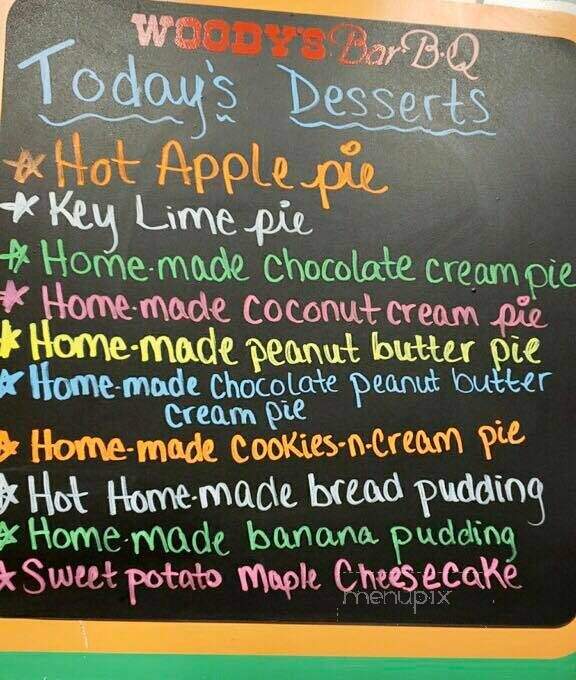 WOODY'S Bar-B-Q
Today's Desserts
Hot Apple pie
Key Lime pie
Home-made chocolate cream pie
Home-made coconut cream pie
Home-made peanut butter pie
Home-made chocolate peanut butter
cream pie
Home-made cookies-n-cream pie
Hot Home-made bread pudding
Home-made banana pudding
Sweet potato Maple Cheesecake
menupix